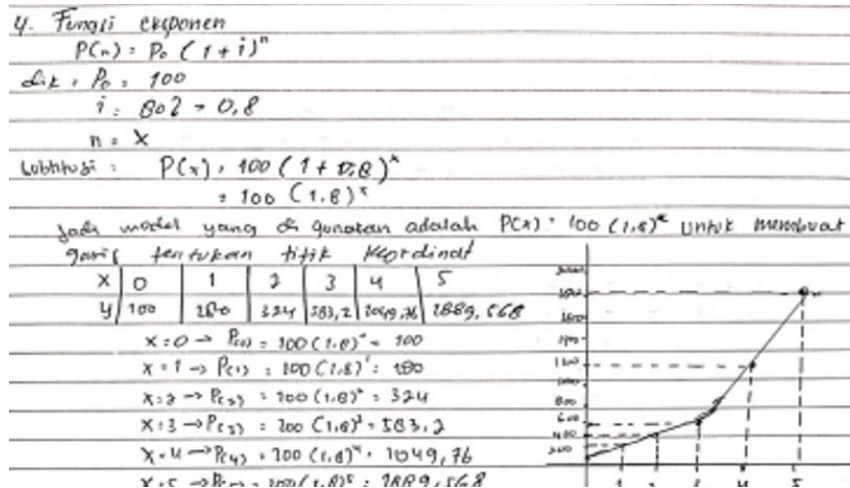 4. Fungsi eksponen
P(n) = P₀ (1 + i)ⁿ
dik : P₀ = 100
i = 80% = 0,8
n = x
Subtitusi : P(x) = 100 (1 + 0,8)ˣ
= 100 (1,8)ˣ
Jadi model yang di gunakan adalah P(x) = 100 (1,8)ˣ untuk membuat
garis tentukan titik koordinat
x 0 1 2 3 4 5
y 100 180 324 583,2 1049,76 1889,568
x=0 → P(0) = 100 (1,8)⁰ = 100
x=1 → P(1) = 100 (1,8)¹ = 180
x=2 → P(2) = 100 (1,8)² = 324
x=3 → P(3) = 100 (1,8)³ = 583,2
x=4 → P(4) = 100 (1,8)⁴ = 1049,76
x=5 → P(5) = 100 (1,8)⁵ = 1889,568
1200
1000
800
600
400
200
1 2 3 4 5